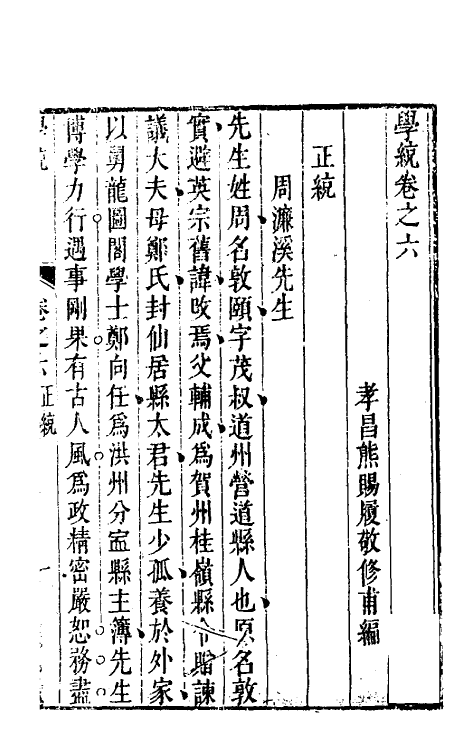 學統卷之六
孝昌熊賜履敬修甫編
正統
周濂溪先生
先生姓周名敦頤字茂叔道州營道縣人也原名敦
實避英宗舊諱攺焉父輔成爲賀州桂嶺縣令贈諫
議大夫母鄭氏封仙居縣太君先生少孤養於外家
以舅龍圖閣學士鄭向任爲洪州分寍縣主簿先生
博學力行遇事剛果有古人風爲政精密嚴恕務盡
學統
卷之六 正統
一